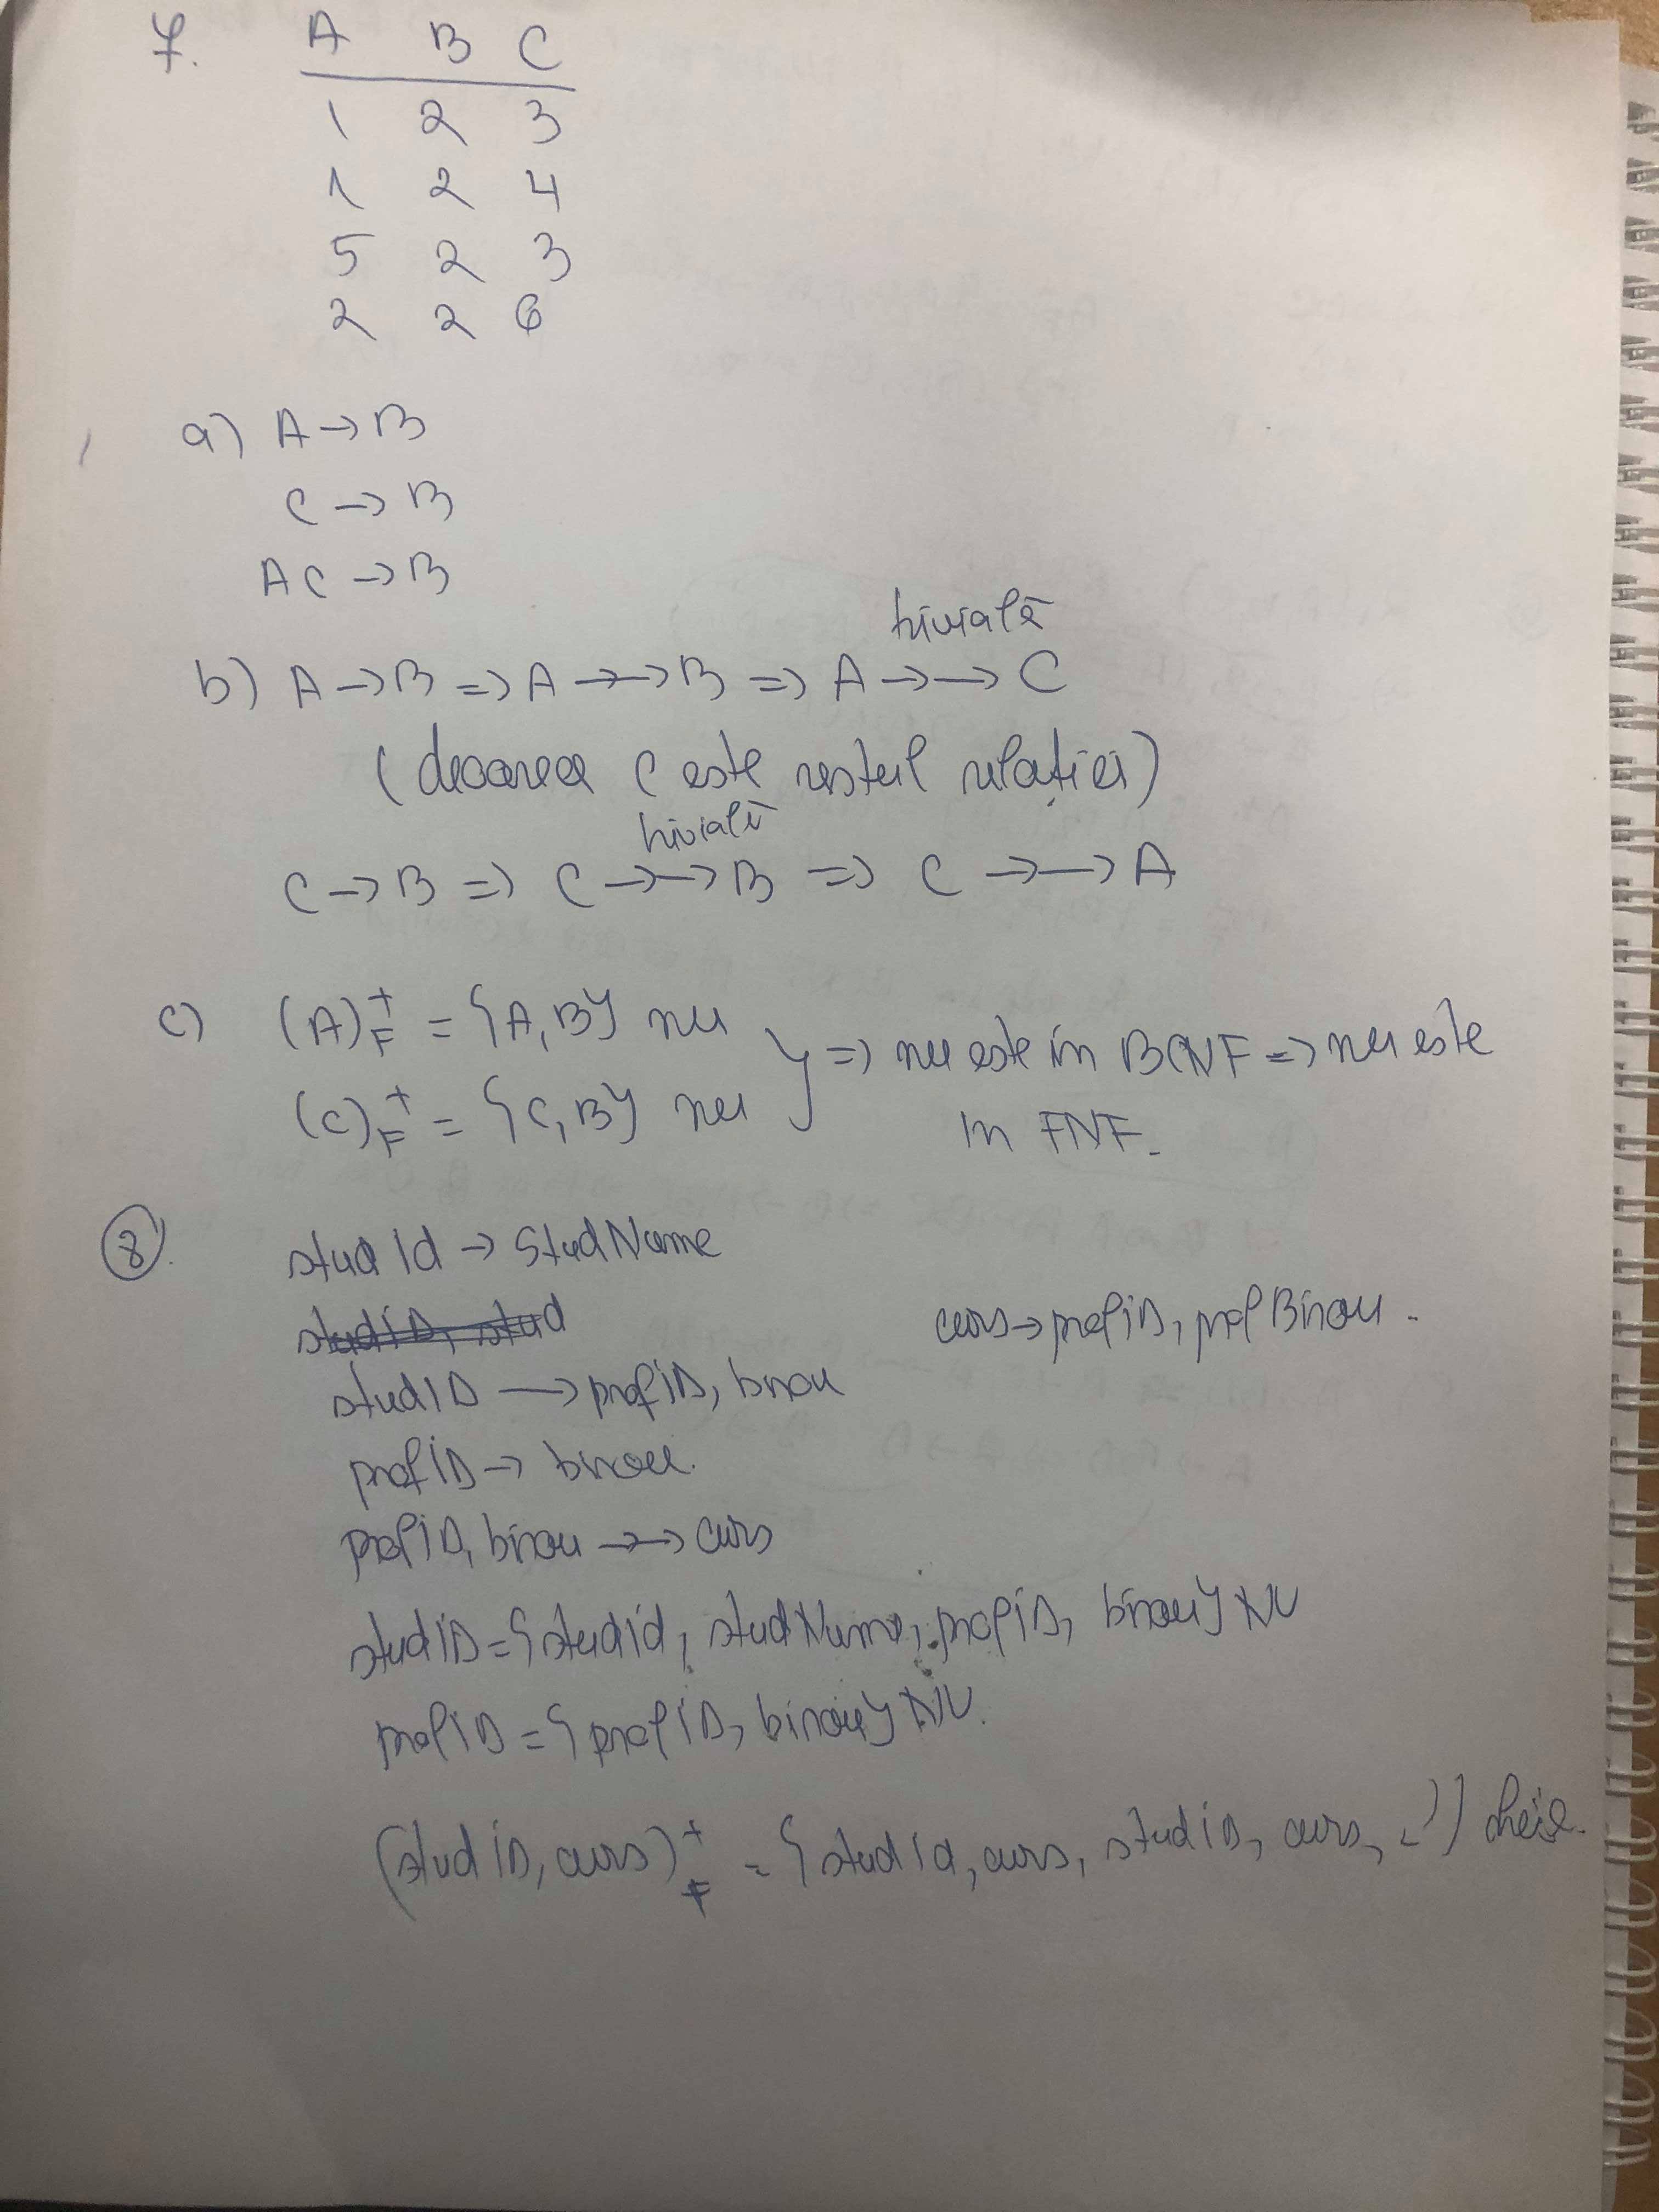 7. A B C
1 2 3
1 2 4
5 2 3
2 2 6
a) A → B
C → B
AC → B
trivială
b) A → B => A →→ B => A →→ C
(deoarece C este restul relației)
trivială
C → B => C →→ B => C →→ A
c) (A)⁺F = {A, B} nu
(C)⁺F = {C, B} nu } => nu este în BCNF => nu este
în FNF.
8. stud Id → StudNume
studID, stud
curs → profID, profBirou.
studID → profID, birou
profID → birou.
profID, birou →→ curs
studID = {studId, studNume, profID, birou} NU
profID = {profID, birou} NU.
(studID, curs)⁺F = {studId, curs, studID, curs, ..} cheie.